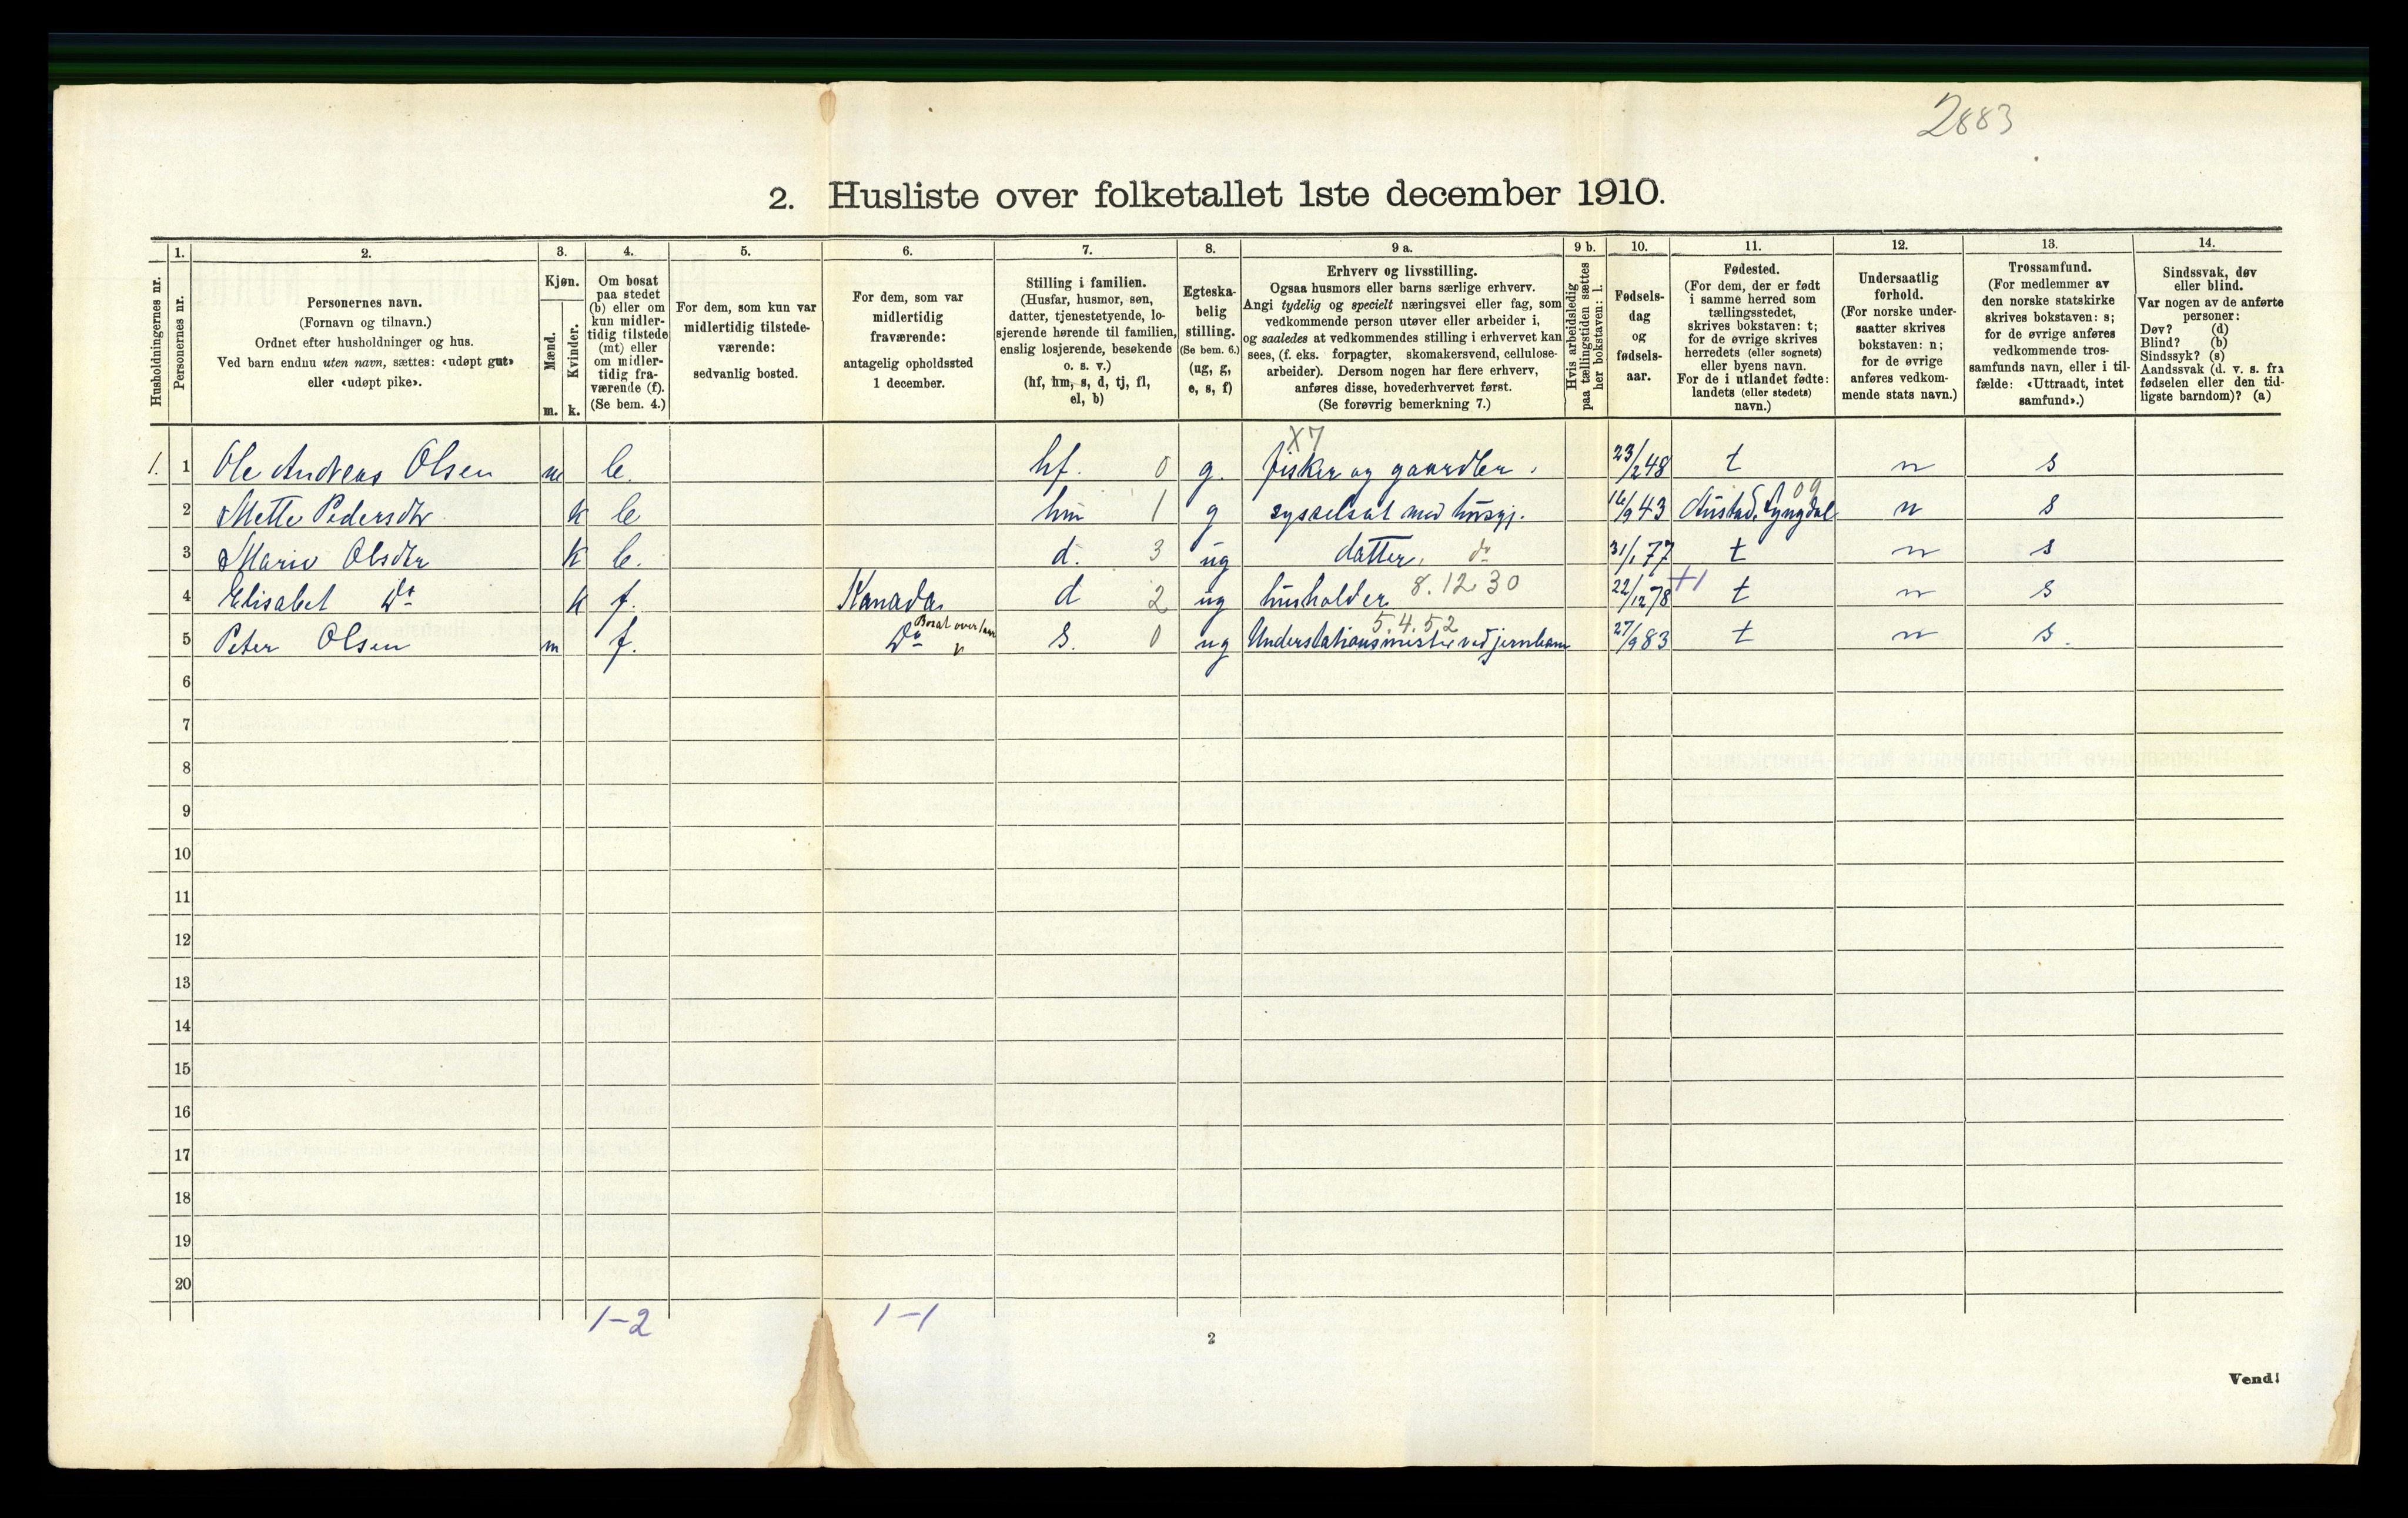 2883
2. Husliste over folketallet 1ste december 1910.
Husholdningernes nr.
1.
Personernes nr.
2.
Personernes navn.
(Fornavn og tilnavn.)
Ordnet efter husholdninger og hus.
Ved barn endnu uten navn, sættes: «udøpt gut»
eller «udøpt pike».
3.
Kjøn.
Mænd.
Kvinder.
m.
k.
4.
Om bosat
paa stedet
(b) eller om
kun midler-
tidig tilstede
(mt) eller
om midler-
tidig fra-
værende (f).
(Se bem. 4.)
5.
For dem, som kun var
midlertidig tilstede-
værende:
sedvanlig bosted.
6.
For dem, som var
midlertidig
fraværende:
antagelig opholdssted
1 december.
7.
Stilling i familien.
(Husfar, husmor, søn,
datter, tjenestetyende, lo-
sjerende hørende til familien,
enslig losjerende, besøkende
o. s. v.)
(hf, hm, s, d, tj, fl,
el, b)
8.
Egteska-
belig
stilling.
(Se bem. 6.)
(ug, g,
e, s, f)
9 a.
Erhverv og livsstilling.
Ogsaa husmors eller barns særlige erhverv.
Angi tydelig og specielt næringsvei eller fag, som
vedkommende person utøver eller arbeider i,
og saaledes at vedkommendes stilling i erhvervet kan
sees, (f. eks. forpagter, skomakersvend, cellulose-
arbeider). Dersom nogen har flere erhverv,
anføres disse, hovederhvervet først.
(Se forøvrig bemerkning 7.)
9 b.
Hvis arbeidsledig
paa tællingstiden sættes
her bokstaven: l.
10.
Fødsels-
dag
og
fødsels-
aar.
11.
Fødested.
(For dem, der er født
i samme herred som
tællingsstedet,
skrives bokstaven: t;
for de øvrige skrives
herredets (eller sognets)
eller byens navn.
For de i utlandet fødte:
landets (eller stedets)
navn.)
12.
Undersaatlig
forhold.
(For norske under-
saatter skrives
bokstaven: n;
for de øvrige
anføres vedkom-
mende stats navn.)
13.
Trossamfund.
(For medlemmer av
den norske statskirke
skrives bokstaven: s;
for de øvrige anføres
vedkommende tros-
samfunds navn, eller i til-
fælde: «Uttraadt, intet
samfund».)
14.
Sindssvak, døv
eller blind.
Var nogen av de anførte
personer:
Døv? (d)
Blind? (b)
Sindssyk? (s)
Aandssvak (d. v. s. fra
fødselen eller den tid-
ligste barndom)? (a)
X7
1. 1 Ole Andreas Olsen m b. hf. 0 g. fisker og gaardbr. 23/2 48 t n s
09
2 Mette Pedersdtr k b hm 1 g sysselsat med husgj. 16/9 43 Austad, Lyngdal n s
3 Marie Olsdtr k b. d. 3 ug datter, do 31/1 77 t n s
8.12.30
4 Elisabet Do k f. Kanada d 2 ug husholder 22/12 78 +1 t n s
Bosat over 1 aar 5.4.52
5 Peter Olsen m f. Do s. 0 ug Understationsmester ved jernbane 27/9 83 t n s.
6
7
8
9
10
11
12
13
14
15
16
17
18
19
20
1-2 1-1
2
Vend!